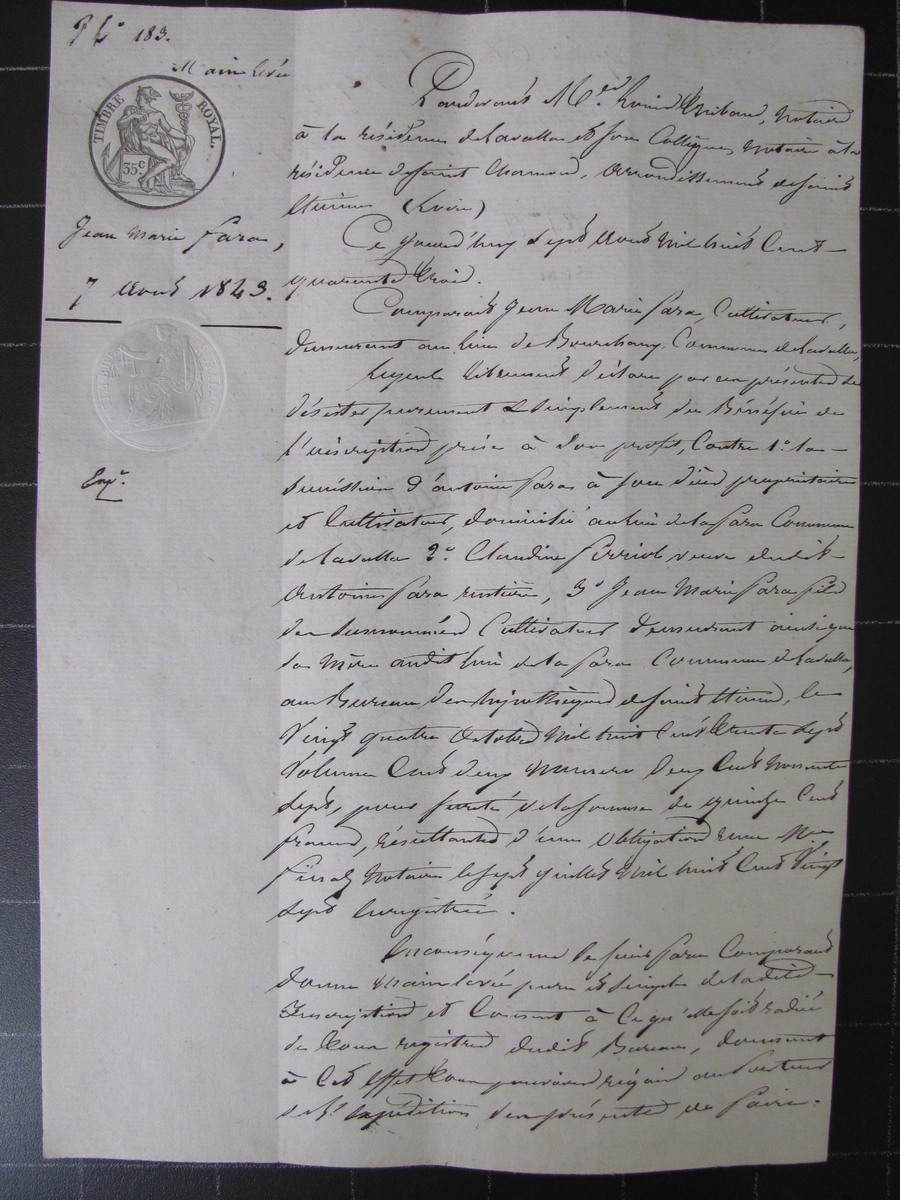 N° 183.
Main levée
TIMBRE ROYAL.
35 c.
Jean Marie fara,
7 Aout 1843.
Exp.on
Pardevant Me Thibaud, Notaire
à la résidence de Lavalla et son Collègue, Notaire à la
résidence de Saint Chamond, arrondissement de Saint
Etienne (Loire)
Ce jourd'huy sept Aout Mil huit Cent
quarante trois.
Comparait Jean Marie fara, Cultivateur,
demeurant au lieu de Commune de Lavalla,
Lequel librement déclare par ces présentes se
désister purement & simplement du Bénéfice de
l'inscription prise à son profit, Contre 1° la
succession d'antoine fara à son décès propriétaire
et Cultivateur, domicilié au lieu de la fara Commune
de Lavalla 2° Claudine veuve dudit
Antoine fara rentière, 3° Jean Marie fara fils
des susnommés Cultivateur demeurant ainsi que
sa Mère audit lieu de la fara Commune de Lavalla,
au Bureau des hypothèques de Saint Etienne, le
Vingt quatre Octobre Mil huit Cent trente sept
Volume Cent deux Numéro deux Cent Nonante
sept, pour sureté de la somme de quinze Cent
francs, résultante d'une obligation reçue Me
Finaz Notaire le sept juillet Mil huit Cent Vingt
sept Enregistrée.
En conséquence le sieur fara Comparant
donne Main levée pure et simple de ladite
Inscription et Consent à Ce qu'elle soit radiée
de tous registres dudit Bureau, donnant
à Cet effet tous pouvoirs requis au porteur
de l'expédition des présentes de faire.